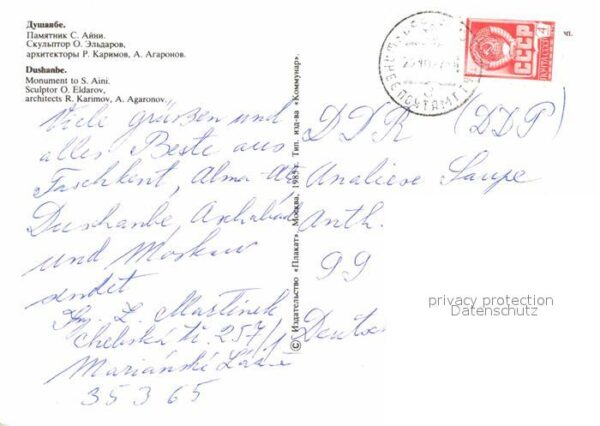 Душанбе.
Памятник С. Айни.
Скульптор О. Эльдаров,
архитекторы Р. Каримов, А. Агаронов.
Dushanbe.
Monument to S. Aini.
Sculptor O. Eldarov,
architects R. Karimov, A. Agaronov.
Viele grüßen und
alles Beste aus
Taschkent, Alma-At
Duschanbe Aschabad
und Moskau
sendet
L. Martinek
257/
Mariánské Lázně
35365
© Издательство «Плакат», Москва, 1985 г. Тип. изд-ва «Коммунар».
СССР
4
DDR (DDP)
Analiese Saupe
Anth.
99
Deutsc
privacy protection
Datenschutz